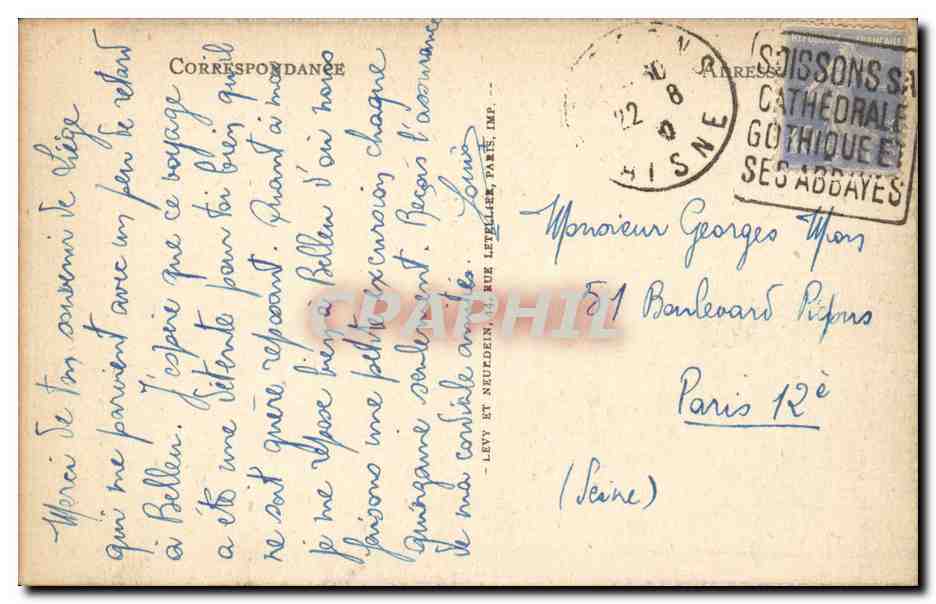 CORRESPONDANCE
Merci de ton souvenir de Liège
qui me parvient avec un peu de retard
à Belleu. J'espère que ce voyage
a été une détente pour toi bien qu'il
ne soit guère reposant. Quant à moi
je me repose bien à Belleu d'où nous
faisons une petite excursion chaque
quinzaine seulement. Reçois l'assurance
de ma cordiale amitié. Louis
- LEVY ET NEURDEIN, 44, RUE LETELLIER, PARIS, IMP. -
22 8
AISNE
ADRESSE
SOISSONS SA
CATHÉDRALE
GOTHIQUE ET
SES ABBAYES
Monsieur Georges Mors
51 Boulevard Picpus
Paris 12è
(Seine)
CPAPHIL